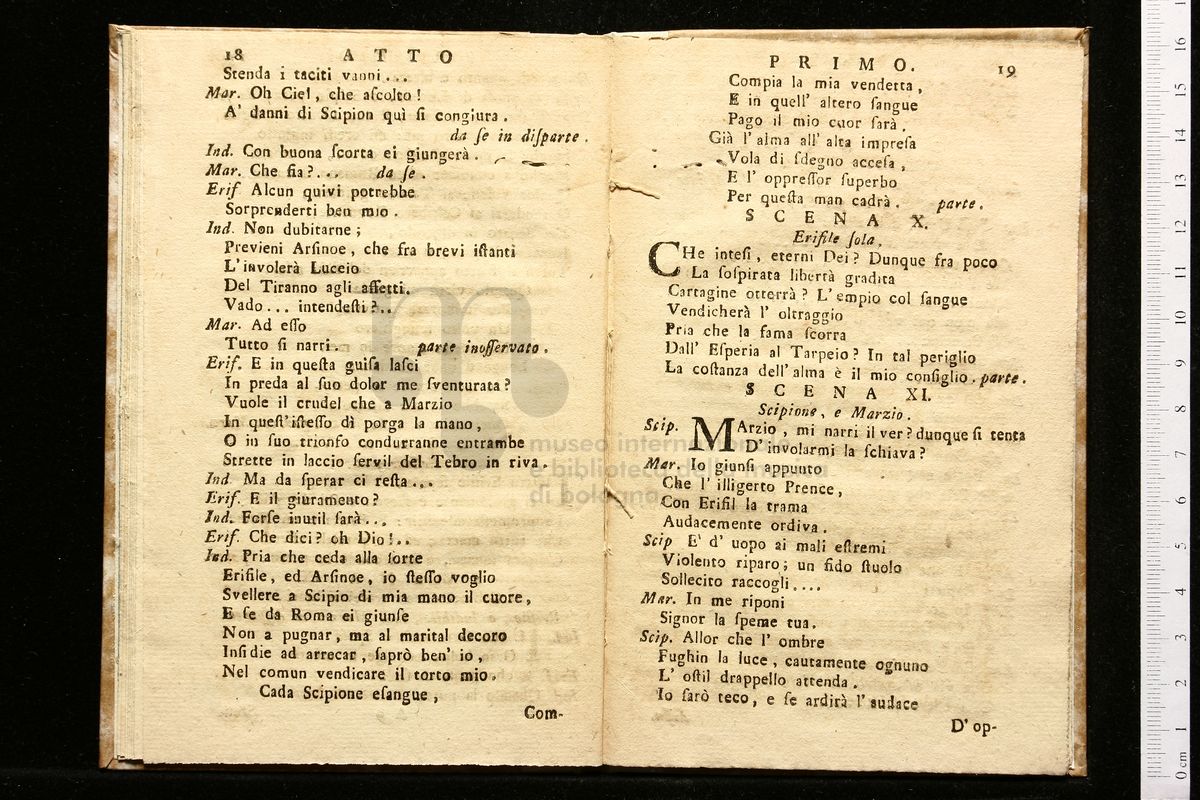 18 ATTO
Stenda i taciti vanni...
Mar. Oh Ciel, che aſcolto!
A' danni di Scipion quì ſi congiura.
da ſe in diſparte.
Ind. Con buona ſcorta ei giungerà.
Mar. Che fia?... da ſe.
Erif Alcun quivi potrebbe
Sorprenderti ben mio.
Ind. Non dubitarne;
Previeni Arſinoe, che fra brevi iſtanti
L'involerà Luceio
Del Tiranno agli affetti.
Vado... intendeſti?..
Mar. Ad eſſo
Tutto ſi narri. parte inoſſervato.
Erif. E in queſta guiſa laſci
In preda al ſuo dolor me ſventurata?
Vuole il crudel che a Marzio
In queſt'iſteſſo dì porga la mano,
O in ſuo trionfo condurranne entrambe
Strette in laccio ſervil del Tebro in riva.
Ind Ma da ſperar ci reſta...
Erif. E il giuramento?
Ind. Forſe inutil ſarà...
Erif. Che dici? oh Dio!..
Ind. Pria che ceda alla ſorte
Erifile, ed Arſinoe, io ſteſſo voglio
Svellere a Scipio di mia mano il cuore,
E ſe da Roma ei giunſe
Non a pugnar, ma al marital decoro
Inſidie ad arrecar, ſaprò ben' io,
Nel comun vendicare il torto mio.
Cada Scipione eſangue,
Com-
PRIMO. 19
Compia la mia vendetta,
E in quell' altero ſangue
Pago il mio cuor ſarà.
Già l'alma all' alta impreſa
Vola di ſdegno acceſa,
E l' oppreſſor ſuperbo
Per queſta man cadrà. parte.
SCENA X.
Erifile ſola.
CHe inteſi, eterni Dei? Dunque fra poco
La ſoſpirata libertà gradita
Cartagine otterrà? L' empio col ſangue
Vendicherà l' oltraggio
Pria che la fama ſcorra
Dall' Eſperia al Tarpeio? In tal periglio
La coſtanza dell'alma è il mio conſiglio. parte.
SCENA XI.
Scipione, e Marzio.
Scip. MArzio, mi narri il ver? dunque ſi tenta
D'involarmi la ſchiava?
Mar. Io giunſi appunto
Che l' illigerto Prence,
Con Erifil la trama
Audacemente ordiva.
Scip E' d' uopo ai mali eſtremi
Violento riparo; un fido ſtuolo
Sollecito raccogli....
Mar. In me riponi
Signor la ſpeme tua.
Scip. Allor che l' ombre
Fughin la luce, cautamente ognuno
L' oſtil drappello attenda.
Io ſarò teco, e ſe ardirà l'audace
D' op-
museo internazionale
e biblioteca della musica
di bologna
0 cm 1 2 3 4 5 6 7 8 9 10 11 12 13 14 15 16